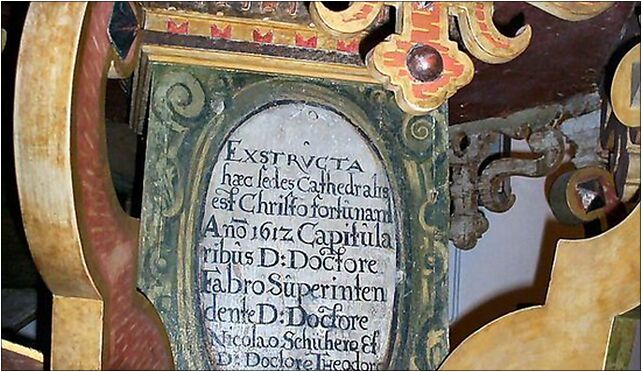 EXSTRVCTA
hæc sedes Cathedralis
est Christo fortunant
Año 1612 Capitûla
ribûs D: Doctore
Fabro Sûperinten
dente D: Doctore
Nicolao Schuhero Et
D: Doctore Theodoro